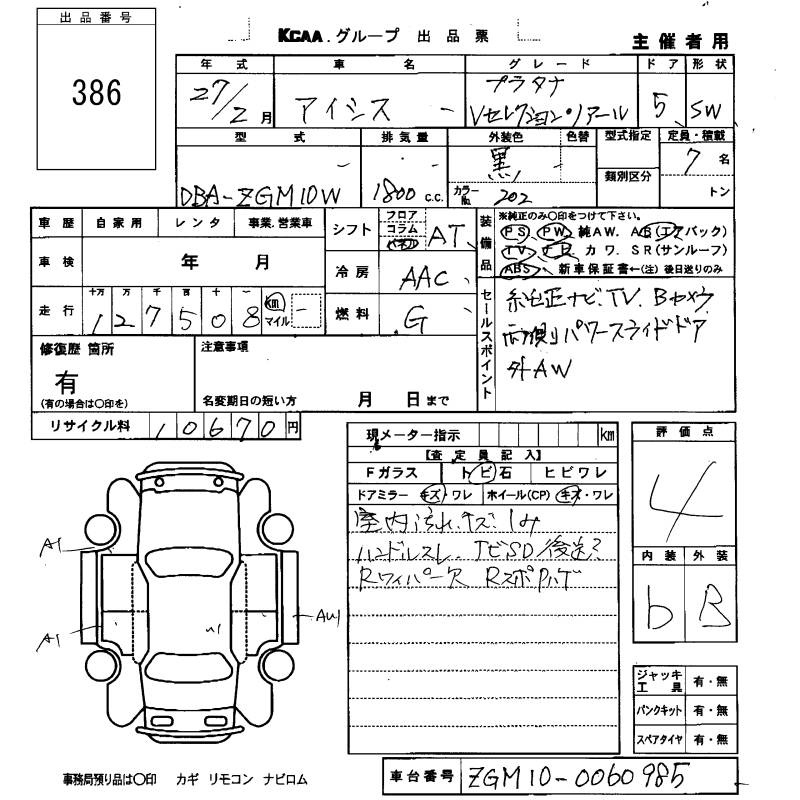 出品番号
386
KCAA.グループ 出品票
主催者用
年式 車名 グレード ドア 形状
27/2月 アイシス プラタナ
Vセレクション・ノアール 5 SW
型式 排気量 外装色 色替 型式指定 定員・積載
黒 7名
類別区分
DBA-ZGM10W 1800 c.c. カラーNo. 202 トン
車歴 自家用 レンタ 事業.営業車
車検 年 月
走行 十万 万 千 百 十 一
127508 km マイル
シフト フロア コラム パネル AT
冷房 AAC
燃料 G
装備品
※純正のみ○印をつけて下さい。
PS、PW、純AW. AB(エアバック)
TV、ナビ カワ. SR(サンルーフ)
ABS、新車保証書←(注)後日送りのみ
セールスポイント
純正ナビ.TV. Bカメラ
両側パワースライドドア
外AW
修復歴 箇所
有
(有の場合は○印を)
注意事項
名変期日の短い方 月 日まで
リサイクル料 10670円
現メーター指示 km
【査定員記入】
Fガラス トビ石 ヒビワレ
ドアミラー キズ・ワレ ホイール(CP) キズ・ワレ
室内汚れ.キズ.しみ
ハンドルスレ.
Rワイパー欠
評価点
4
内装 外装
b B
A1
AW1
A1
ジャッキ工具 有・無
パンクキット 有・無
スペアタイヤ 有・無
事務局預り品は○印 カギ リモコン ナビロム
車台番号 ZGM10-0060985